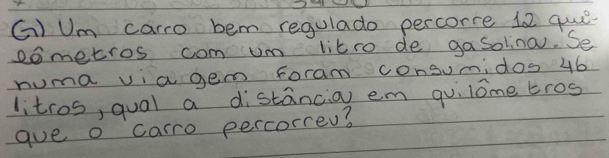 G) Um carro bem regulado percorre 12 qui-
lômetros com um litro de gasolina. Se
numa viagem foram consumidos 46
litros, qual a distância em quilômetros
que o carro percorreu?